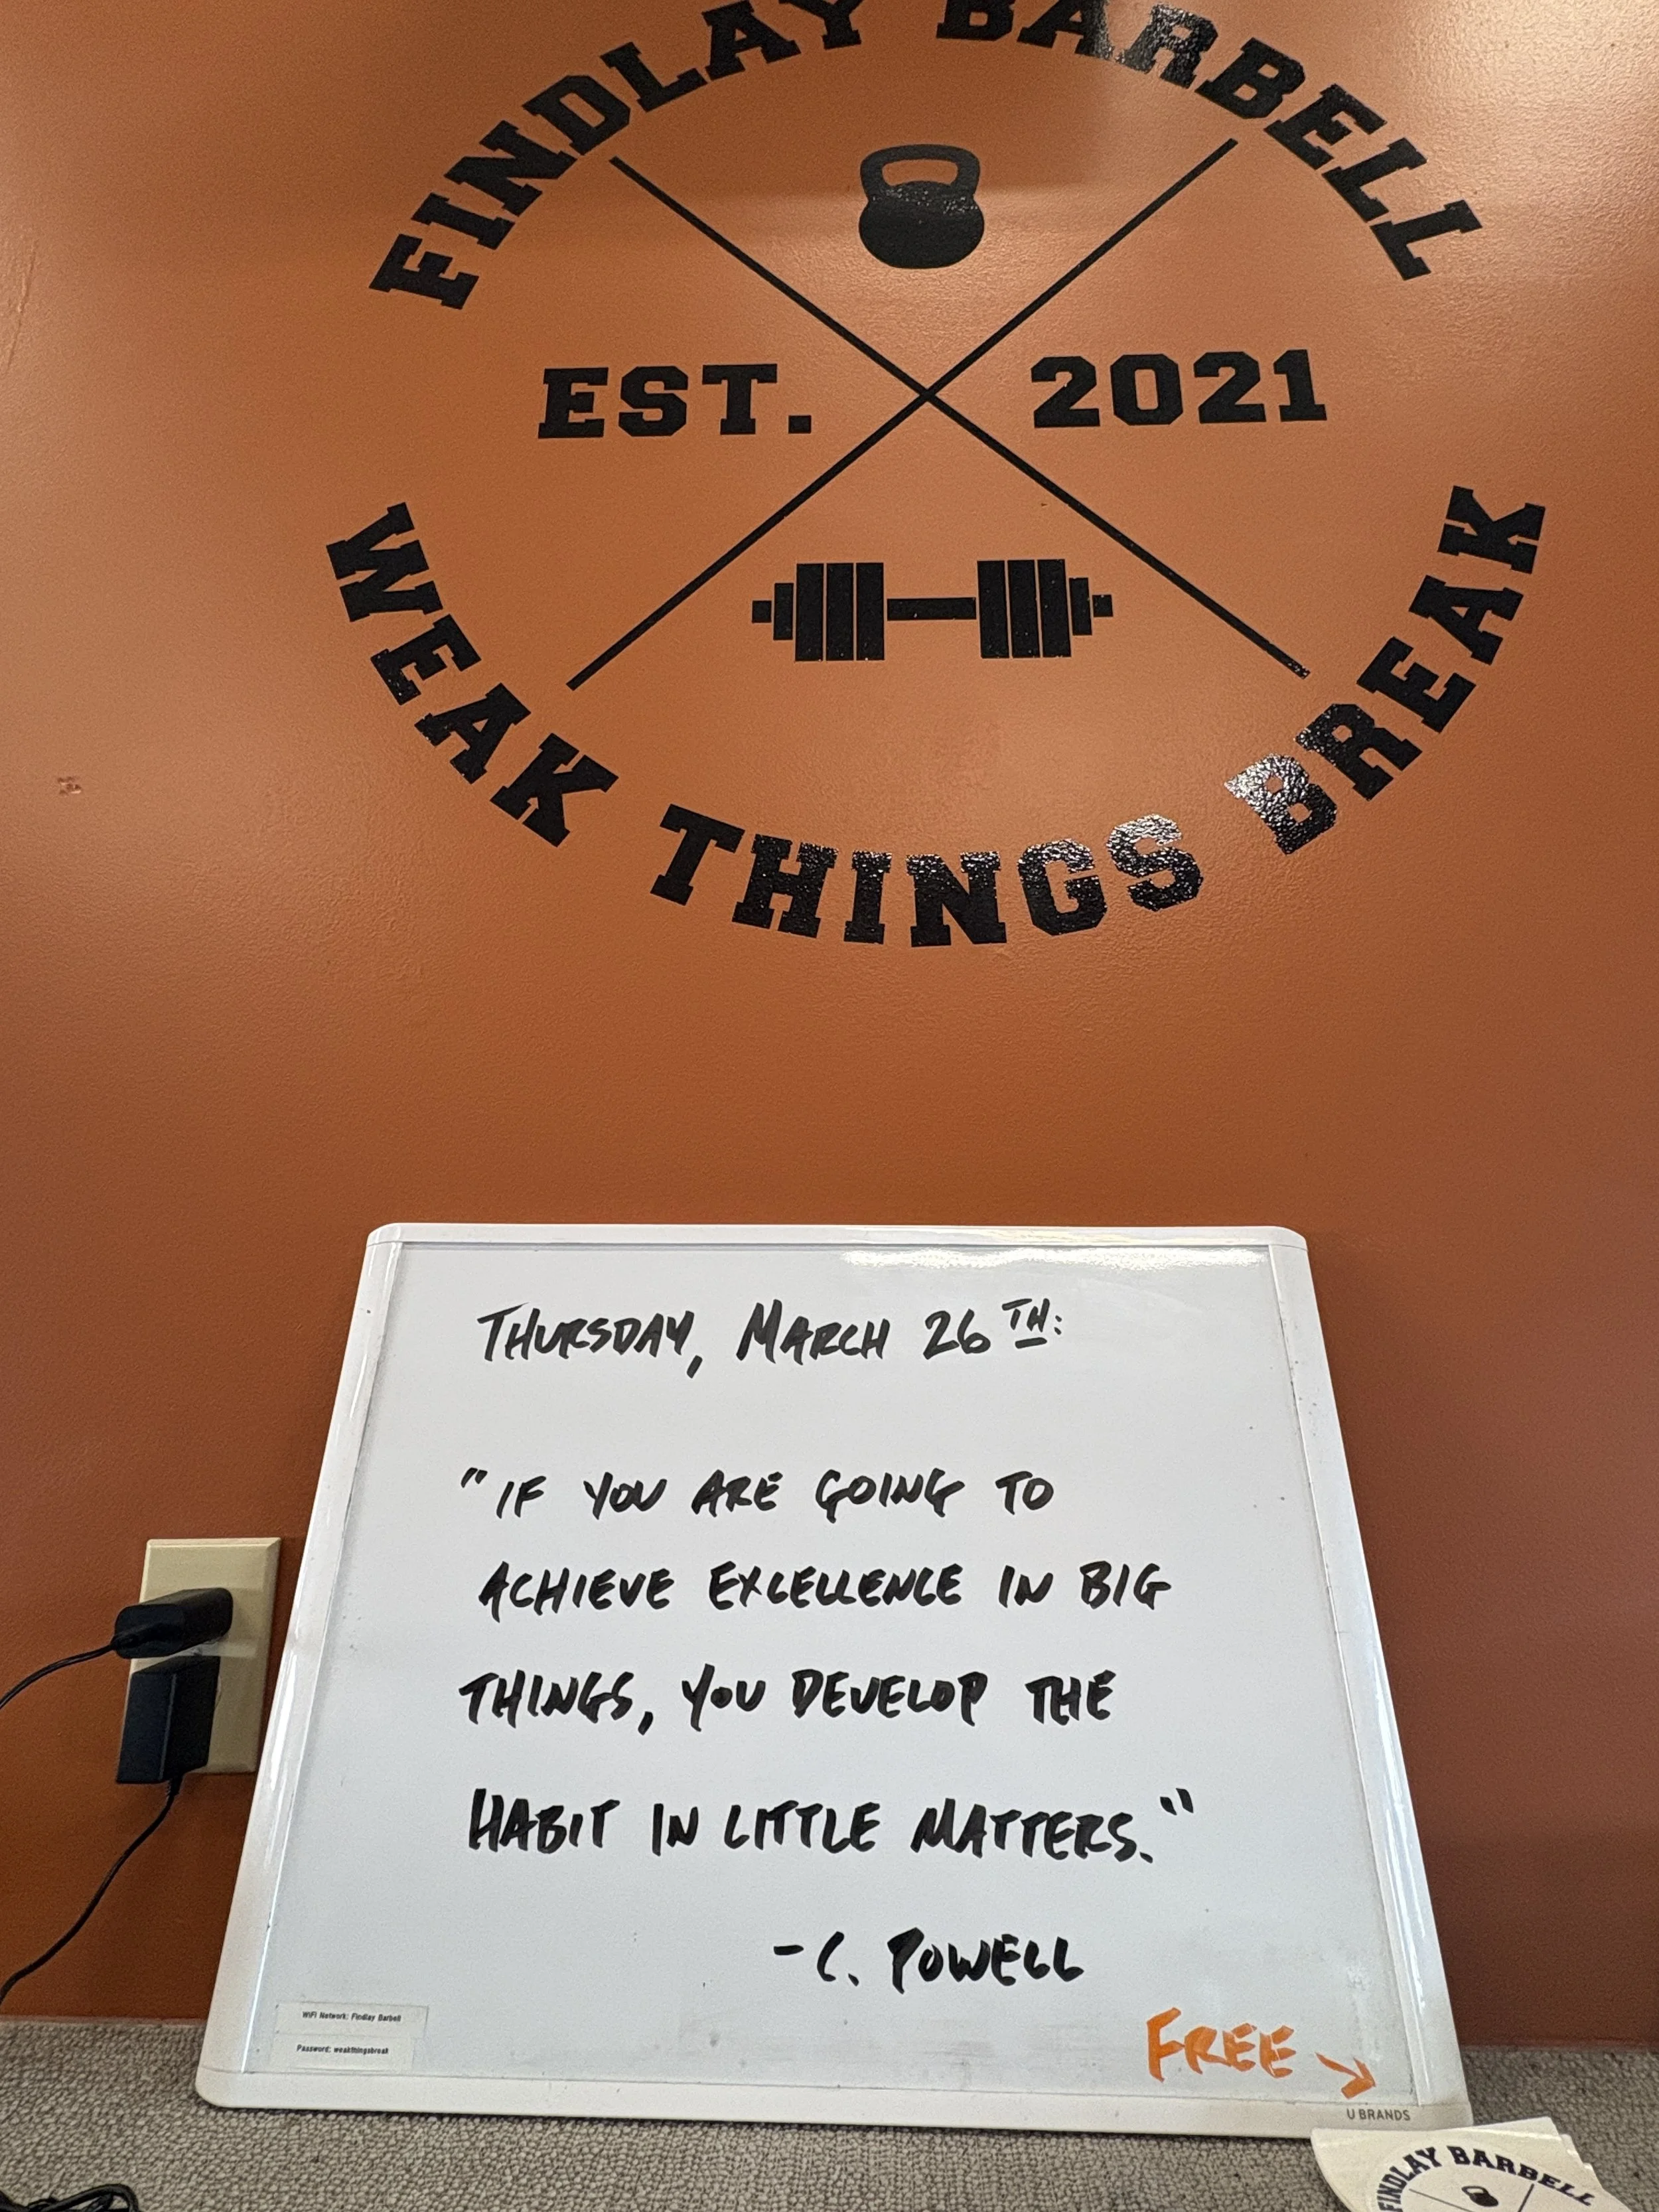 FINDLAY BARBELL
EST. 2021
WEAK THINGS BREAK
THURSDAY, MARCH 26TH:
"IF YOU ARE GOING TO
ACHIEVE EXCELLENCE IN BIG
THINGS, YOU DEVELOP THE
HABIT IN LITTLE MATTERS."
-C. POWELL
WiFi Network: Findlay Barbell
Password: weakthingsbreak
FREE →
U BRANDS
FINDLAY BARBELL